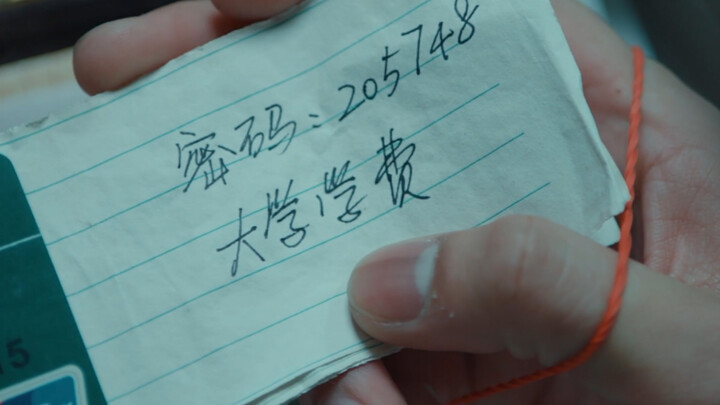 密码:205748
大学学费
15